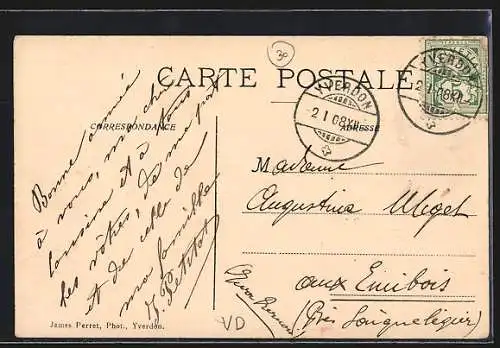 30
CARTE POSTALE
CORRESPONDANCE
ADRESSE
YVERDON
2 I 08 XII
YVERDON
2 I 08 XII
Bonne année
à vous, ma chère
cousine et à tous
les vôtres, de ma part
et de celle de
ma famille
J. Petitat
Madame
Augustina Miget
aux Emibois
(Près Saignelégier)
(Jura Bernois)
James Perret, Phot., Yverdon.
VD